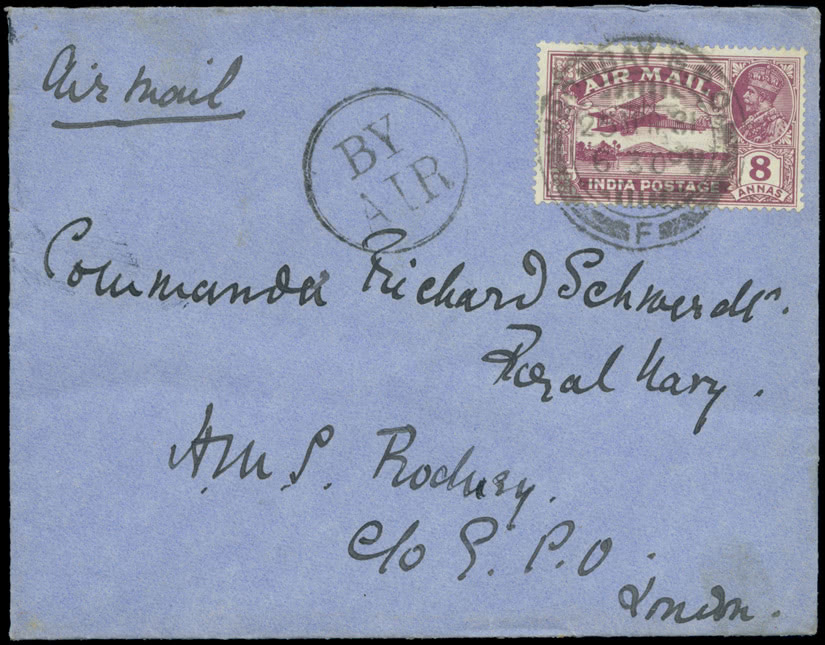 Air Mail
BY
AIR
AIR MAIL
INDIA POSTAGE
8
ANNAS
6 30 PM
F
Commander Richard Schwerdt.
Royal Navy.
H.M.S. Rodney.
c/o G.P.O.
London.